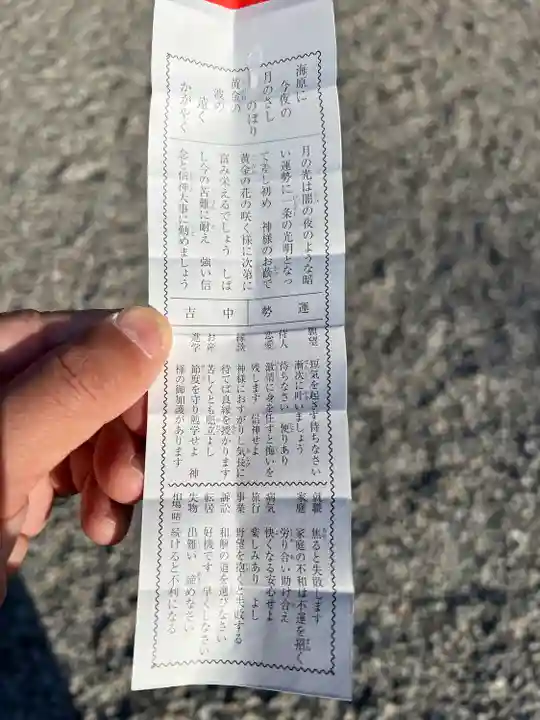 海原に
今夜の
月のさし
のぼり
黄金の
波の
遠く
かがやく
月の光は闇の夜のような暗
い運勢に一条の光明となっ
てさし初め 神様のお蔭で
黄金の花の咲く様に次第に
富み栄えるでしょう しば
し今の苦難に耐え 強い信
念と信神大事に勤めましょう
運勢
中吉
願望 短気を起さず待ちなさい
漸次に叶いましょう
待人 待ちなさい 便りあり
恋愛 激情に身を任すと悔いを
残します 信神せよ
縁談 神様におすがりし気長に
待てば良縁を授かります
お産 苦しくとも肥立よし
進学 節度を守り勉学せよ 神
様の御加護があります
就職 焦ると失敗します
家庭 家庭の不和は不運を招く
労り合い助け合え
病気 快くなる安心せよ
旅行 楽しみあり よし
事業 野望を抱くと失敗する
訴訟 和解の道を選びなさい
転居 好機です 早くしなさい
失物 出難い 諦めなさい
相場・賭 続けると不利になる